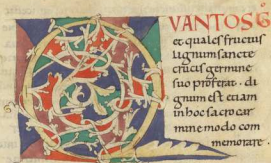 QVANTOS &
et quales fructus
lignum sancte
crucis germine
suo proferat · di
gnum est etiam
in hoc sacro car
mine modo com
memorare ·